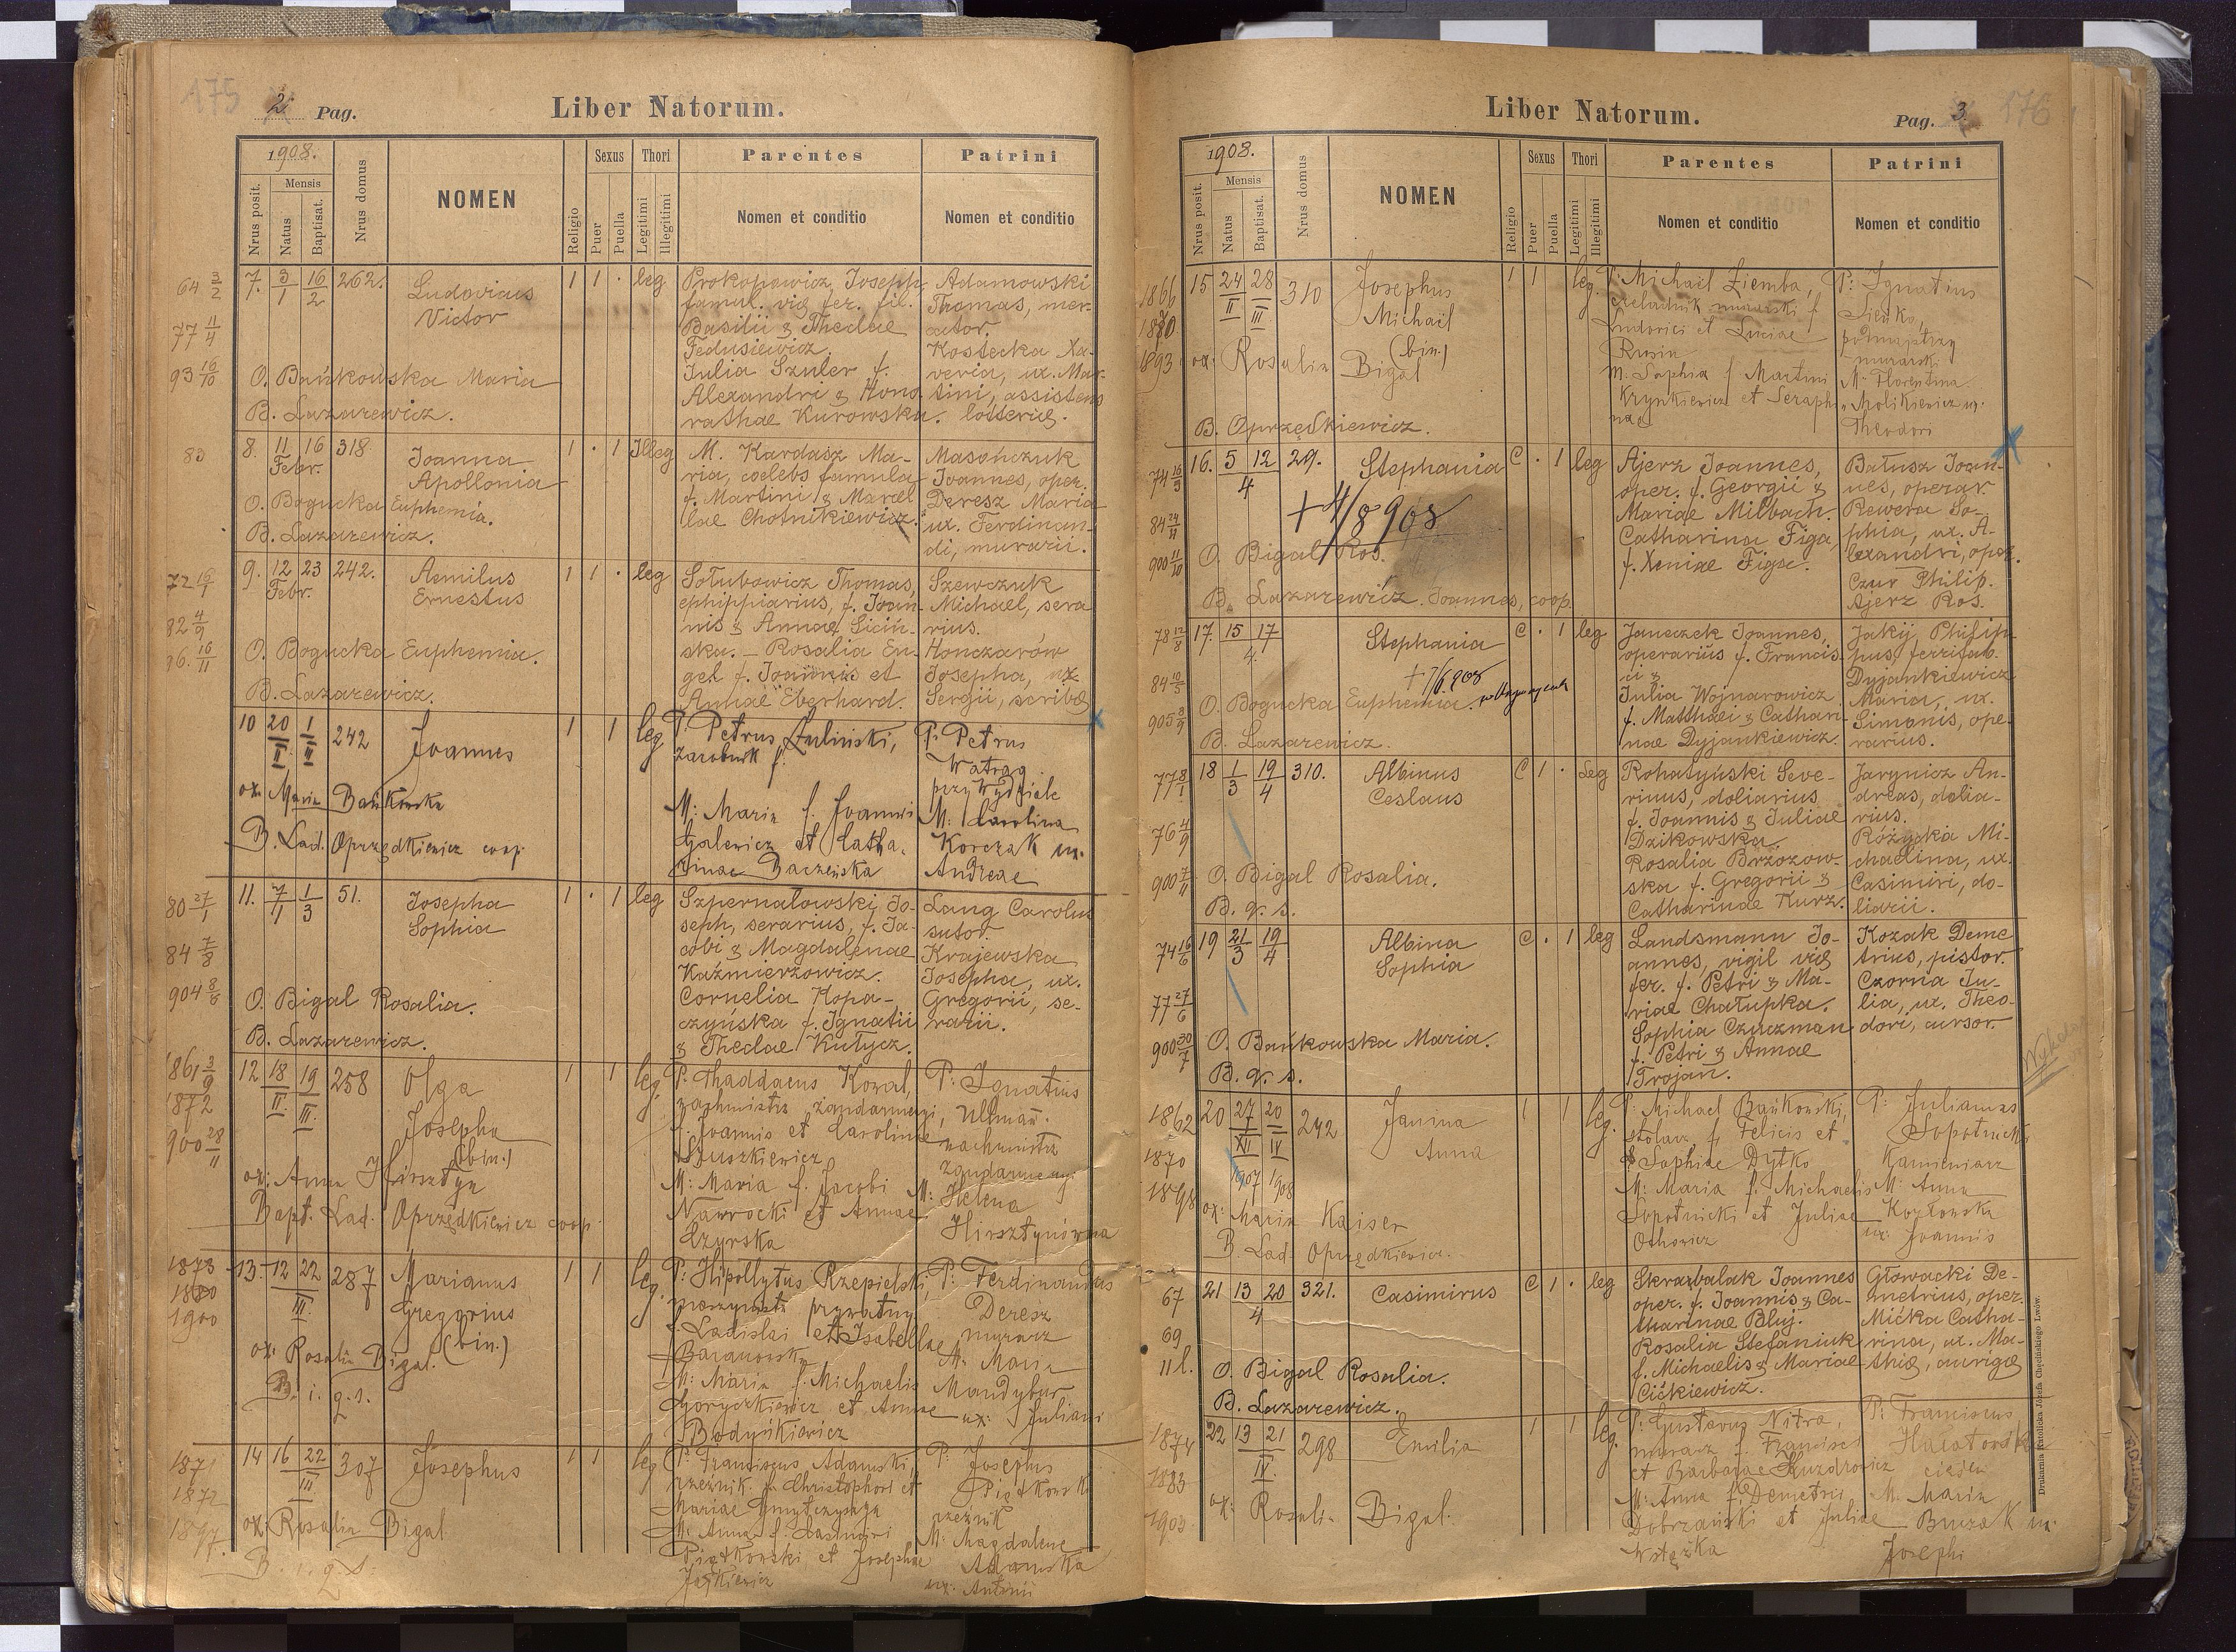 175
2. Pag.
Liber Natorum.
1908.
Nrus posit.
Mensis
Natus
Baptisat.
Nrus domus
NOMEN
Religio
Sexus
Puer
Puella
Thori
Legitimi
Illegitimi
Parentes
Nomen et conditio
Patrini
Nomen et conditio
64 3/2
77 11/4
93 16/10
7. 3/1 16/2 262.
Ludovicus
Victor
1 1 . leg
Prokopowicz Joseph
famul. viæ fer. fil.
Basilii & Theclae
Fedusiewicz.
Julia Szuler f.
Alexandri & Hono-
rathae Kurowska.
Adamowski
Thomas, mer-
cator.
Kostecka Xa-
veria, ux. Mar-
tini, assistens
lotteriæ.
O. Bańkowska Maria
B. Lazarewicz.
83
8. 11 16 Febr. 318.
Joanna
Apollonia
1 . 1 Illeg
M. Kardasz Ma-
ria, coelebs famula
f. Martini & Marcel
lae Chotnikiewicz.
Masończuk
Joannes, oper.
Deresz Maria
ux. Ferdinan-
di, murarii.
O. Bogucka Euphemia.
B. Lazarewicz.
72 16/1
82 4/9
96. 16/11
9. 12 23 Febr. 242.
Aemilus
Ernestus
1 1 . leg
Sołubowicz Thomas,
ephippiarius, f. Joan-
nis & Annae Siciń-
ska. – Rosalia En-
gel f. Joannis et
Annae Eberhard.
Szewczuk
Michael, sera
rius.
Honczarów
Josepha, ux
Sergii, scribæ
O. Bogucka Euphemia.
B. Lazarewicz.
10 20/II 1/III 242
Joannes
1 1 leg
P: Petrus Żuliński,
zarobnik f.
M: Maria f. Joannis
Galewicz et Catha-
rinae Baczeńska
P: Petrus
Watrag
przy Wydziale
M: Carolina
Korczak ux.
Andreae
ox: Maria Bańkowska
B. Lad. Oprzędkiewicz coop.
80 27/1
84 7/8
904 8/6
11. 7/1 1/3 51.
Josepha
Sophia
1 . 1 leg
Szpernalowski Jo-
seph, serarius, f. Ja-
cobi & Magdalenae
Kaźmierzowicz.
Cornelia Kopa-
czyńska f. Ignatii
& Theclae Kutycz.
Lang Carolus
sutor
Krajewska
Josepha, ux.
Gregorii, se-
rarii.
O. Bigal Rosalia.
B. Lazarewicz.
1861 3/9
1872
900 28/11
12 18/II. 19/III. 258
Olga
Josepha
(bin.)
1 1 leg.
P: Thaddaeus Kowal,
wachmistrz żandarmeryi,
f. Joannis et Carolinae
Szuszkiewicz
M: Maria f. Jacobi
Nawrocki et Annae
Czyrska
P: Ignatius
Ullmann.
wachmistrz
żandarmeryi
M: Helena
Hirsztynówna
ox: Anna Hirsztyn
Bapt. Lad. Oprzędkiewicz coop.
1873
1880
1900
13. 12 22 III. 287
Marianus
Gregorius
(bin.)
1 1 leg.
P: Hipollytus Rzepielski,
prywatny
f. Ladislai et Isabellae
Baranowska
M: Maria f. Michaelis
Goryczkiewicz et Annae
Bodyńkiewicz
P: Ferdinandus
Deresz
murarz
M: Maria
Mandybur
ux: Juliani
ox: Rosalia Bigal.
B. i. q. s.
1871
1872
1897.
14 16 22 III 307
Josephus
1 1 leg
P: Franciscus Adamski,
rzeźnik f. Christophori et
Mariae
M: Anna f. Casimiri
Piątkowski et Josephae
Jaśkiewicz
P: Josephus
Piątkowski
rzeźnik
M: Magdalena
Adamska
ux: Antonii
ox: Rosalia Bigal
B. i. q. s.
Liber Natorum.
Pag. 3.
176
1908.
Nrus posit.
Mensis
Natus
Baptisat.
Nrus domus
NOMEN
Religio
Sexus
Puer
Puella
Thori
Legitimi
Illegitimi
Parentes
Nomen et conditio
Patrini
Nomen et conditio
1866
1870
1893
15 24/II 28/III 310
Josephus
Michail
(bin.)
1 1 leg.
P: Michail Ziemba,
czeladnik murarski f
Ludovici et Luciae
Rusin
M: Sophia f Martini
Krynkiewicz et Seraphi-
nae
P: Ignatius
Sieńko,
podmajstrzy
murarski
M: Florentina
Molikiewicz ux.
Theodori
ox: Rosalia Bigal
B. Oprzędkiewicz.
74 16/3
84 24/11
900 11/10
16. 5 12 4 29.
Stephania
C . 1 leg
Ajerz Joannes,
oper. f. Georgii &
Mariae Milbach.
Catharina Figa,
f. Xeniae Figa.
Batusz Joan-
nes, operar.
Rewera So-
phia, ux. A-
lexandri, oper.
Czur Philip.
Ajerz Ros.
+ 4/8 908
O. Bigal Ros.
B. Lazarewicz Joannes, coop.
78 12/8
84 10/5
905 8/9
17. 15 17 4.
Stephania
C . 1 leg
Janeczek Joannes,
operarius f. Francis-
ci &
Julia Wojnarowicz
f. Matthaei & Cathari-
nae Dyjankiewicz.
Jakij Philip-
pus, ferrifab.
Dyjankiewicz
Maria, ux.
Simonis, ope-
rarius.
+ 7/6 908
O. Bogucka Euphemia.
B. Lazarewicz.
77 8/1
76 4/9
900 7/11
18 1/3 19/4 310.
Albinus
Ceslaus
C 1 . Leg
Rohatyński Seve-
rinus, doliarius
f. Joannis & Juliae
Dzikowska.
Rosalia Brzozow-
ska f. Gregorii &
Catharinae Kurz.
Jarynicz An-
dreas, dolia-
rius.
Różycka Mi-
chalina, ux.
Casimiri, do-
liarii.
O. Bigal Rosalia.
B. q. s.
74 16/6
77 27/6
900 30/7
19 21/3 19/4
Albina
Sophia
C . 1 leg
Landsmann Jo-
annes, vigil viæ
fer. f. Petri & Ma-
riae Chałupka.
Sophia Czuczman
f. Petri & Annae
Trojan.
Kozak Deme
trius, pistor.
Czorna Ju-
lia, ux. Theo-
dori, cursor.
O. Bańkowska Maria.
B. q. s.
1862
1870
1898
20 27/XII 20/IV 242
1907 1908
Janina
Anna
1 1 leg.
P: Michael Bańkowski,
stolarz f. Felicis et
Sophiae Dytko
M: Maria f. Michaelis
Sopotnicki et Juliae
Othowicz
P: Julianus
Sopotnicki
Kamieniarz
M: Anna
Kozłowska
ux: Joannis
ox: Maria Kaiser
B. Lad. Oprzędkiewicz.
67
69
11 l.
21 13 20 4 321.
Casimirus
C 1 . leg
Skrabalak Joannes
oper. f. Joannis & Ca-
tharinae Bluj.
Rosalia Stefaniuk
f. Michaelis & Mariae
Cićkiewicz.
Głowacki De-
metrius, oper.
Mićka Catha-
rina, ux. Ma-
thiæ, aurigæ
O. Bigal Rosalia.
B. Lazarewicz.
1874
1883
1903
22 13 21 IV. 298
Emilia
1 1 leg.
P: Gustavus Nitra,
murarz f. Francisci
et Barbarae Kuzdrowicz
M: Anna f. Demetrii
Dobrzański et Juliae
Wstężka
P: Franciscus
cieśla
M: Maria
Burzak ux.
Josephi
ox: Rosalia Bigal.
Drukarnia Katolicka Józefa Chęcińskiego Lwów.